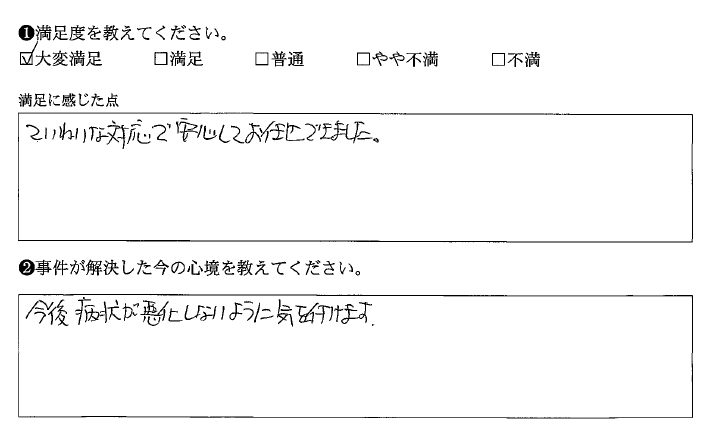 ❶満足度を教えてください。
☑大変満足 □満足 □普通 □やや不満 □不満
満足に感じた点
ていねいな対応で安心してお任せできました。
❷事件が解決した今の心境を教えてください。
今後病状が悪化しないように気を付けます.